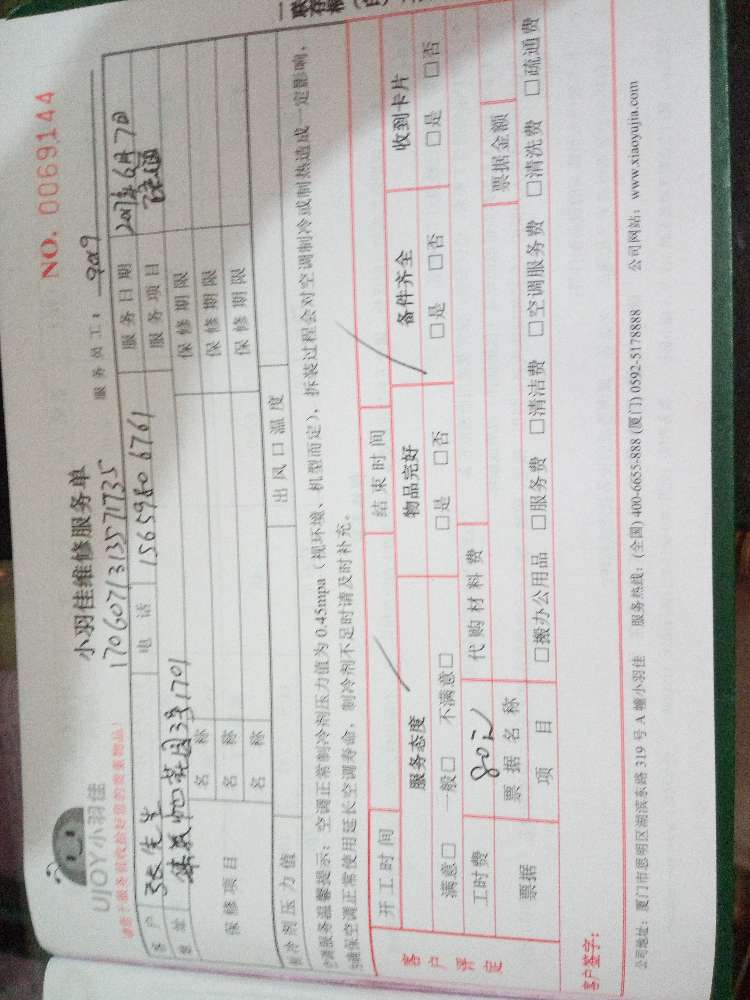 NO. 0069144
小羽佳维修服务单
UJOY小羽佳
服务员工：9019
请您于服务前收拾好您的贵重物品
1706071313571735
客户 张先生 电话 1565980 6761 服务日期 2017年6月7日
地址 花园3号1701 服务项目
保修项目 名称 保修期限
名称 保修期限
名称 保修期限
制冷剂压力值 出风口温度
空调服务温馨提示：空调正常制冷剂压力值为0.45mpa（视环境、机型而定），拆装过程会对空调制冷或制热造成一定影响，
为确保空调正常使用延长空调寿命，制冷剂不足时请及时补充。
开工时间 结束时间
客户评定 服务态度 物品完好 备件齐全 收到卡片
满意□ 一般□ 不满意□ □是 □否 □是 □否 □是 □否
工时费 80元 代购材料费
票据 票据名称 票据金额
项目 □搬办公用品 □服务费 □清洁费 □空调服务费 □清洗费 □疏通费
客户签字：
公司地址：厦门市思明区湖滨东路319号A幢小羽佳 服务热线：(全国) 400-6655-888 (厦门) 0592-5178888 公司网站：www.xiaoyujia.com